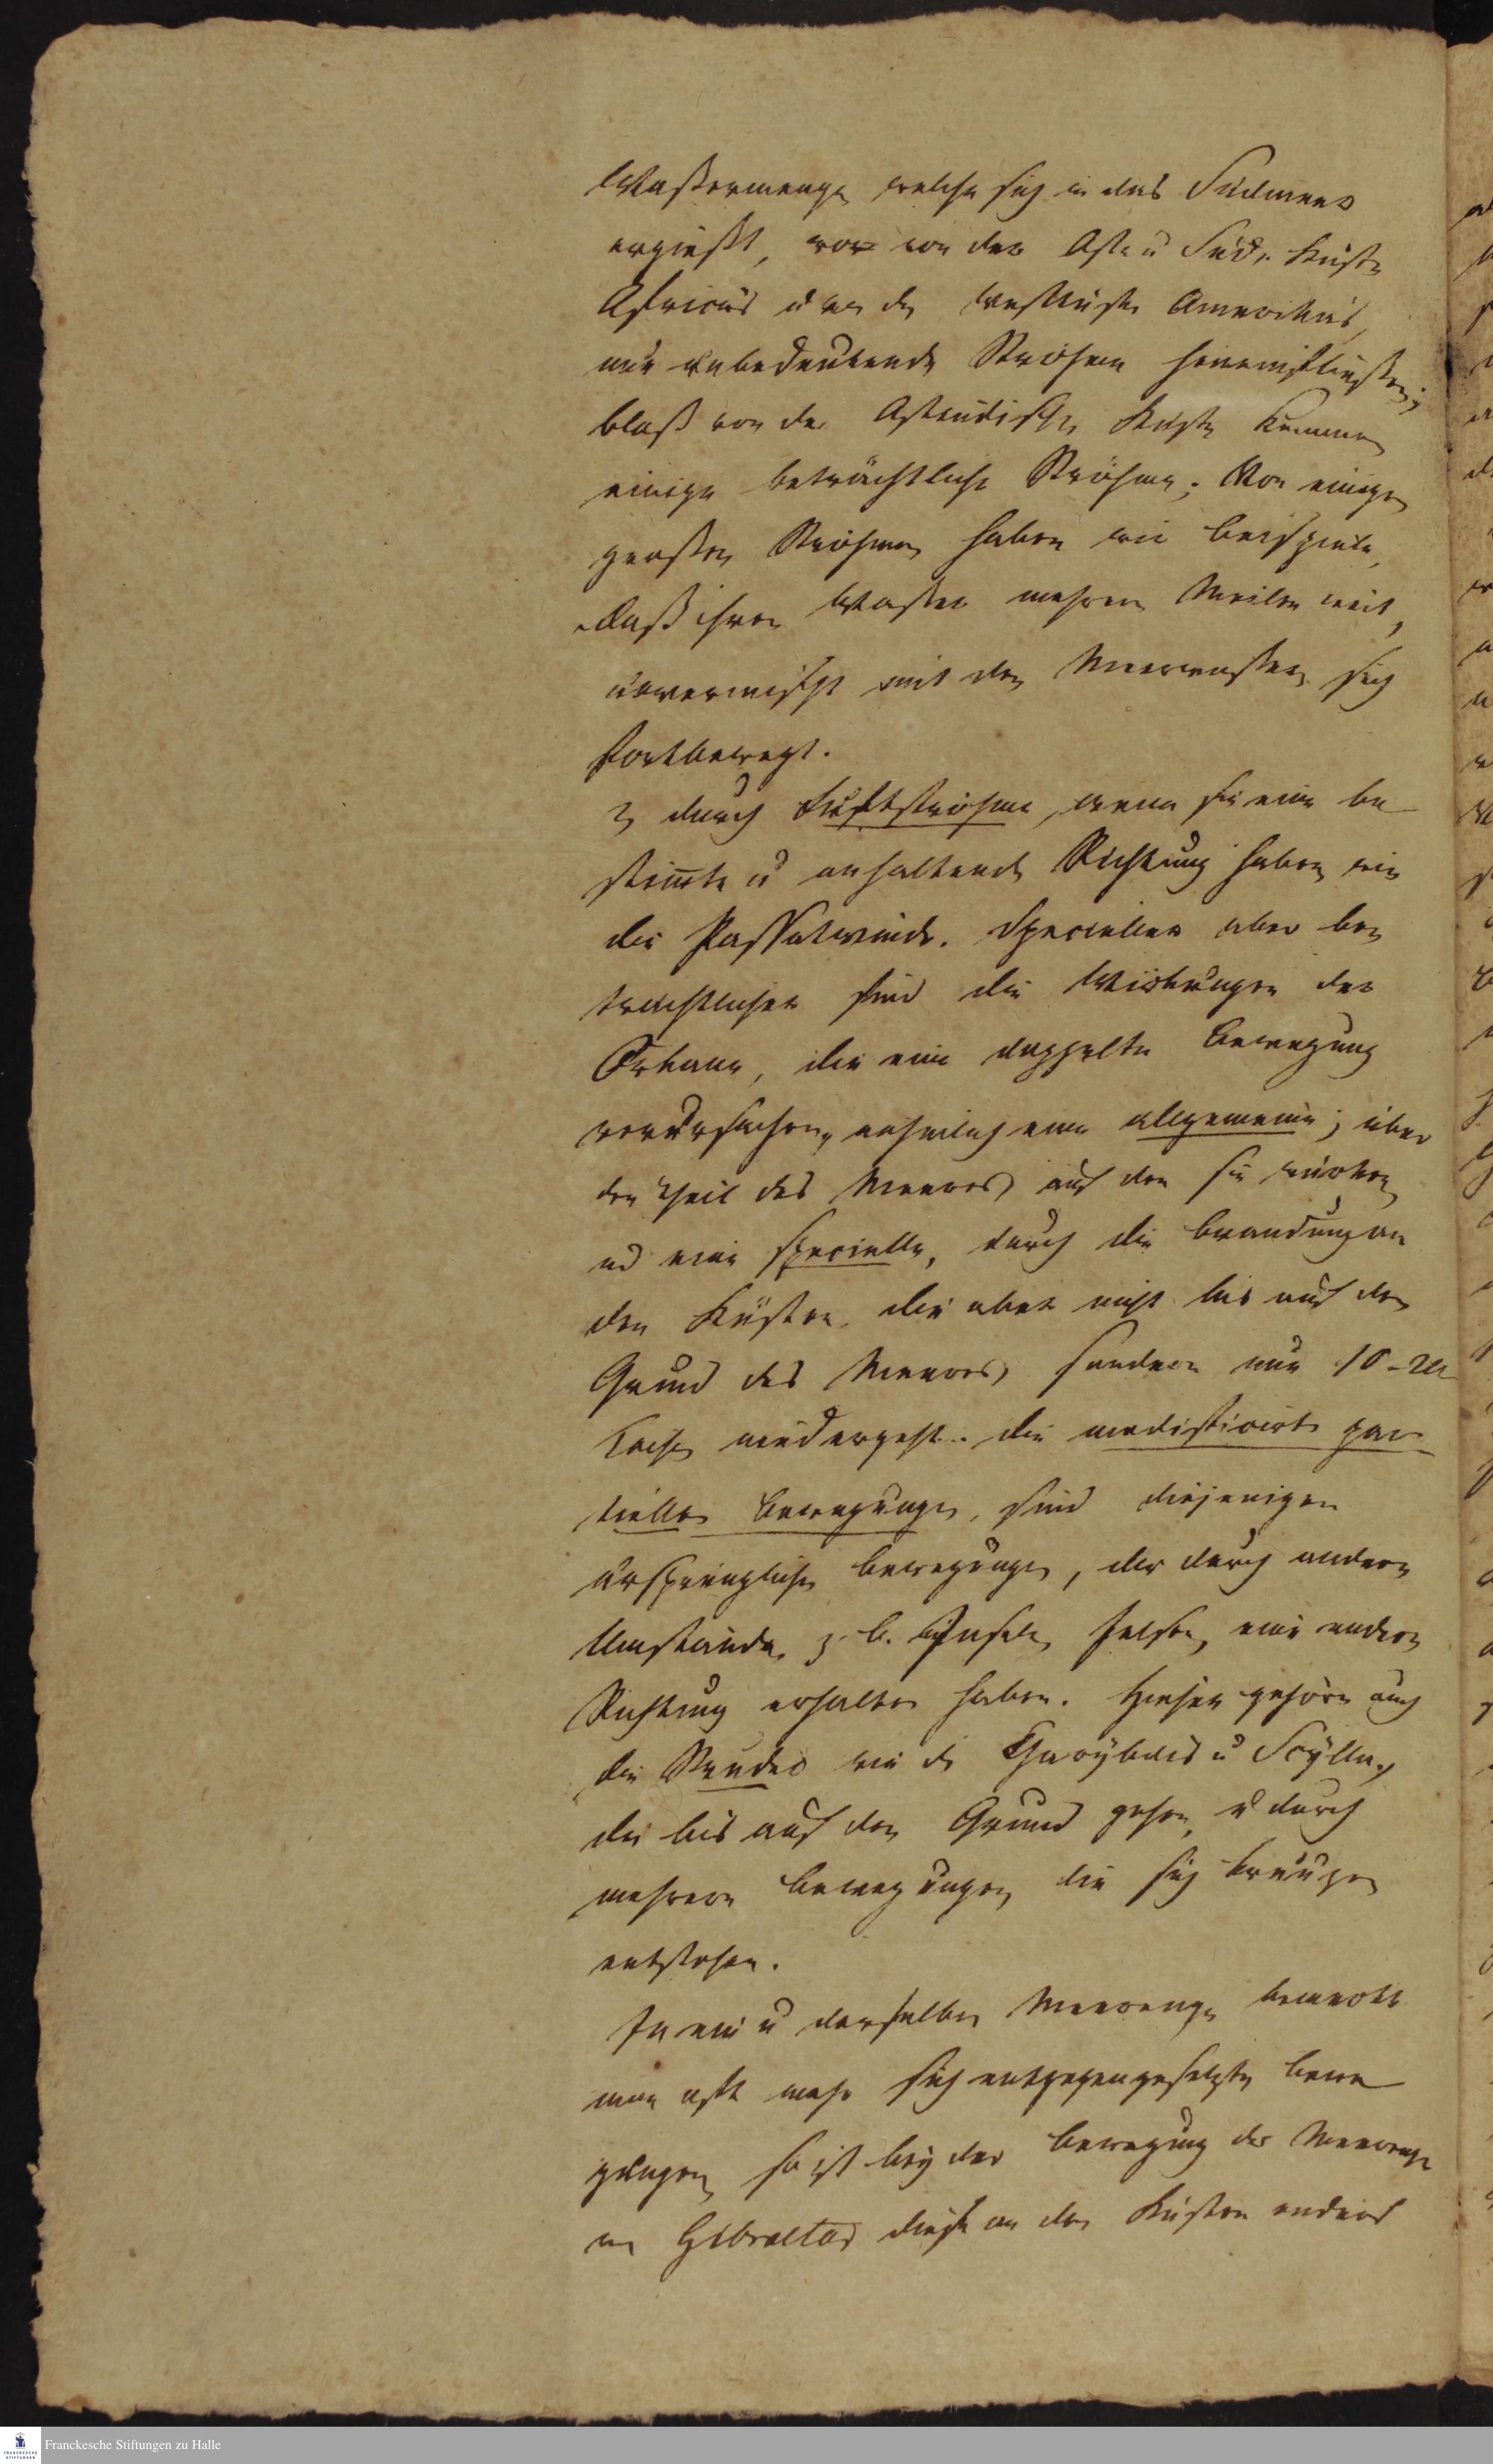 Wassermenge welche sich in das Südmeer
ergießt, von der Ost u Süd. Küste
Africas u von der Westküste Americkas,
nur unbedeutende Ströhme hineinfließen;
bloß von der Ostindischen Küste kommen
einige beträchtliche Ströhme; Von einigen
großen Ströhmen haben wir Beispiele,
daß ihre Wasser mehrere Meilen weit,
unvermischt mit den Meerwasser sich
fortbewegt.
2, durch Luftströhme, wenn sie eine be
stimte u anhaltende Richtung haben wie
die Passatwinde. Specieller aber be
trächtlicher sind die Wirkungen der
Orkane, die eine doppelte Bewegung
verursachen, nehmlich eine allgemeine; über
den Theil des Meeres, auf den sie wirken
ud eine specielle, durch die Brandung an
den Küsten, die aber nicht bis auf den
Grund des Meeres, sondern nur 10-20
niedergeht. die modificirte par
tiellen Bewegungen, sind diejenigen
ursprünglichen Bewegungen, die durch andere
Umstände, z. B. Inseln, Felsen, eine andere
Richtung erhalten haben. Hieher gehören auch
die Strudel wie die Charÿbdis u Scÿlla,
die bis auf den Grund gehen, u durch
mehrere Bewegungen die sich kreuzen
entstehen.
In ein u derselben Meerenge bemerkt
man oft mehr sich entgegengesetzte Bewe
gungen, so ist beÿ der Bewegung der Meerenge
Gibraltar diese an den Küsten anders
Franckesche Stiftungen zu Halle